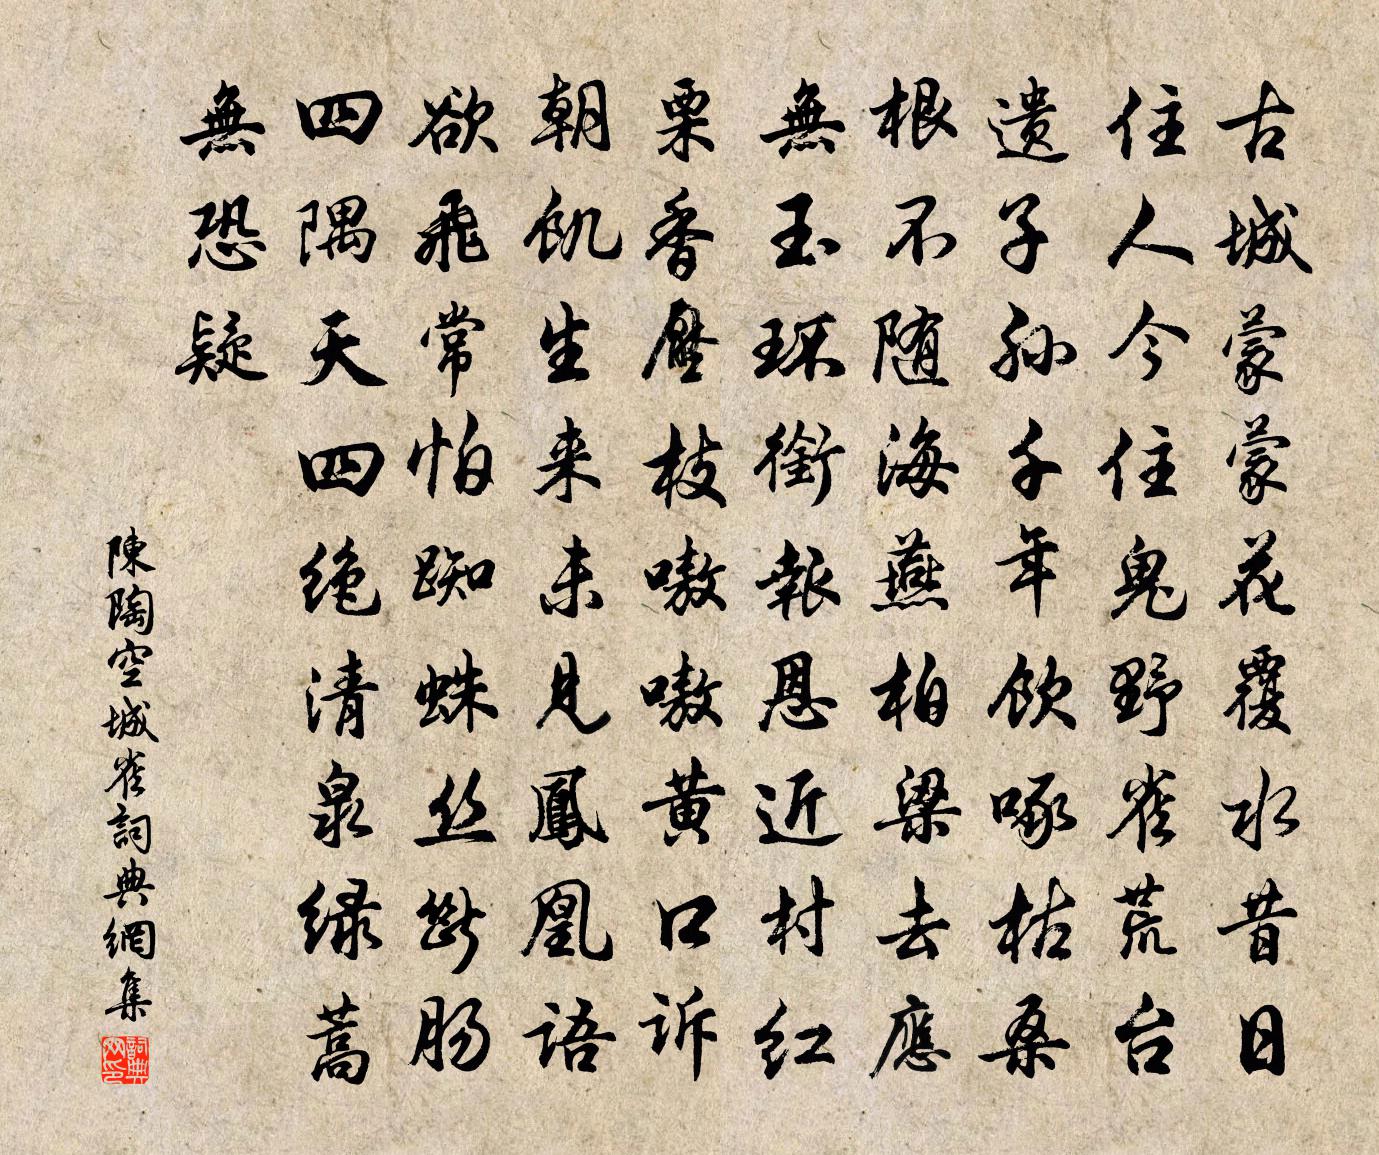 古城蒙蒙花覆水昔日
住人今住鬼野雀荒台
遗子孙千年饮啄枯桑
根不随海燕柏梁去應
無玉环銜報恩近村红
栗香壓枝嗷嗷黄口诉
朝飢生来未見鳳凰语
欲飛常怕蜘蛛丝断肠
四隅天四绝清泉绿蒿
無恐疑
陳陶空城雀詞典網集
詞典网印